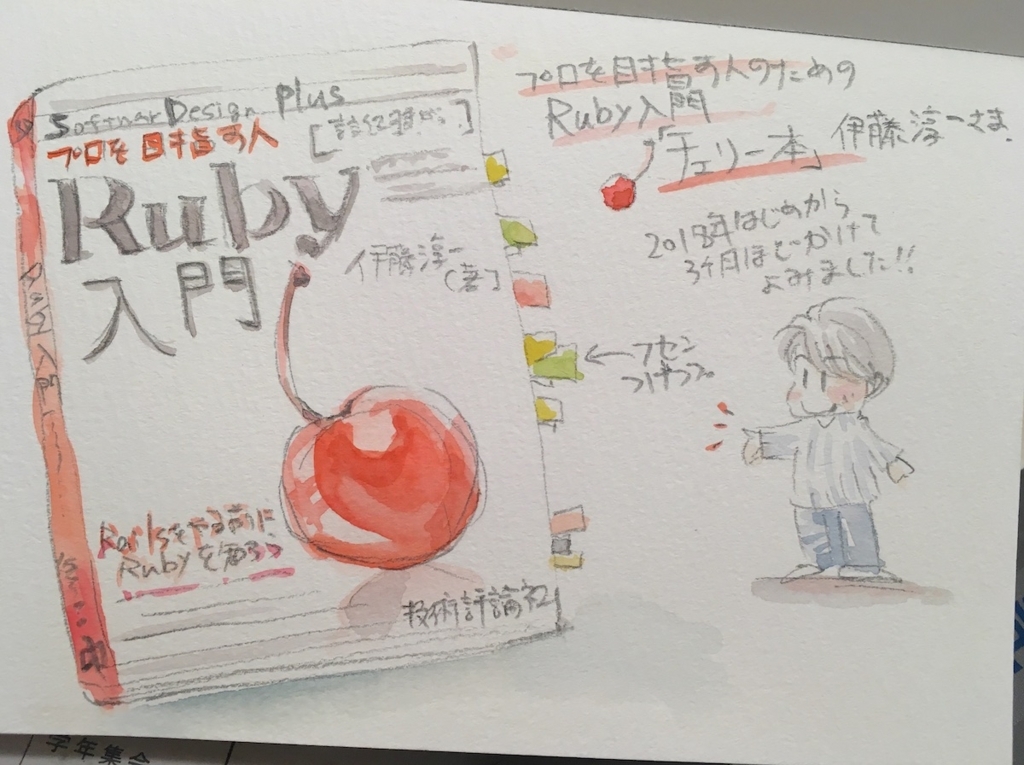 Softwar Design plus
プロを目指す人
Ruby
入門
伊藤淳一
(著)
Railsをやる前に
Rubyを知ろう
技術評論社
Ruby入門
プロを目指す人のための
Ruby入門
「チェリー本」 伊藤淳一さま
2018年はじめから
3ヶ月ほどかけて
よみました!!
←フセン
学年集会